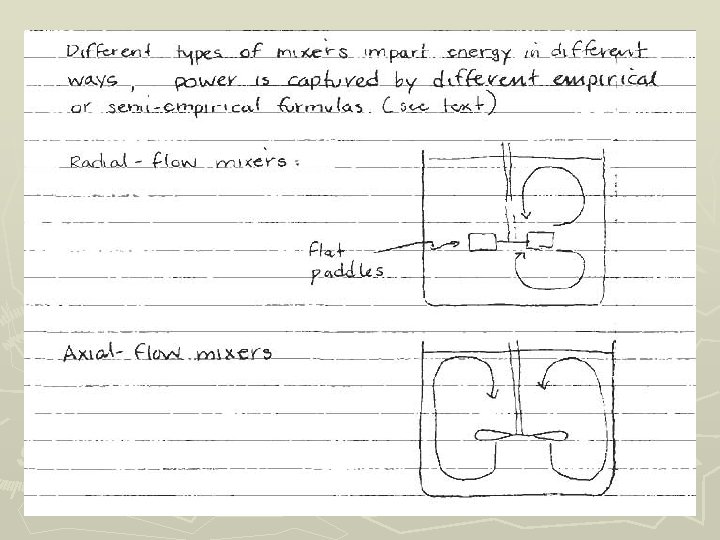 Different types of mixers impart energy in different
ways, power is captured by different empirical
or semi-empirical formulas (see text)
Radial-flow mixers:
flat
paddles
Axial-flow mixers